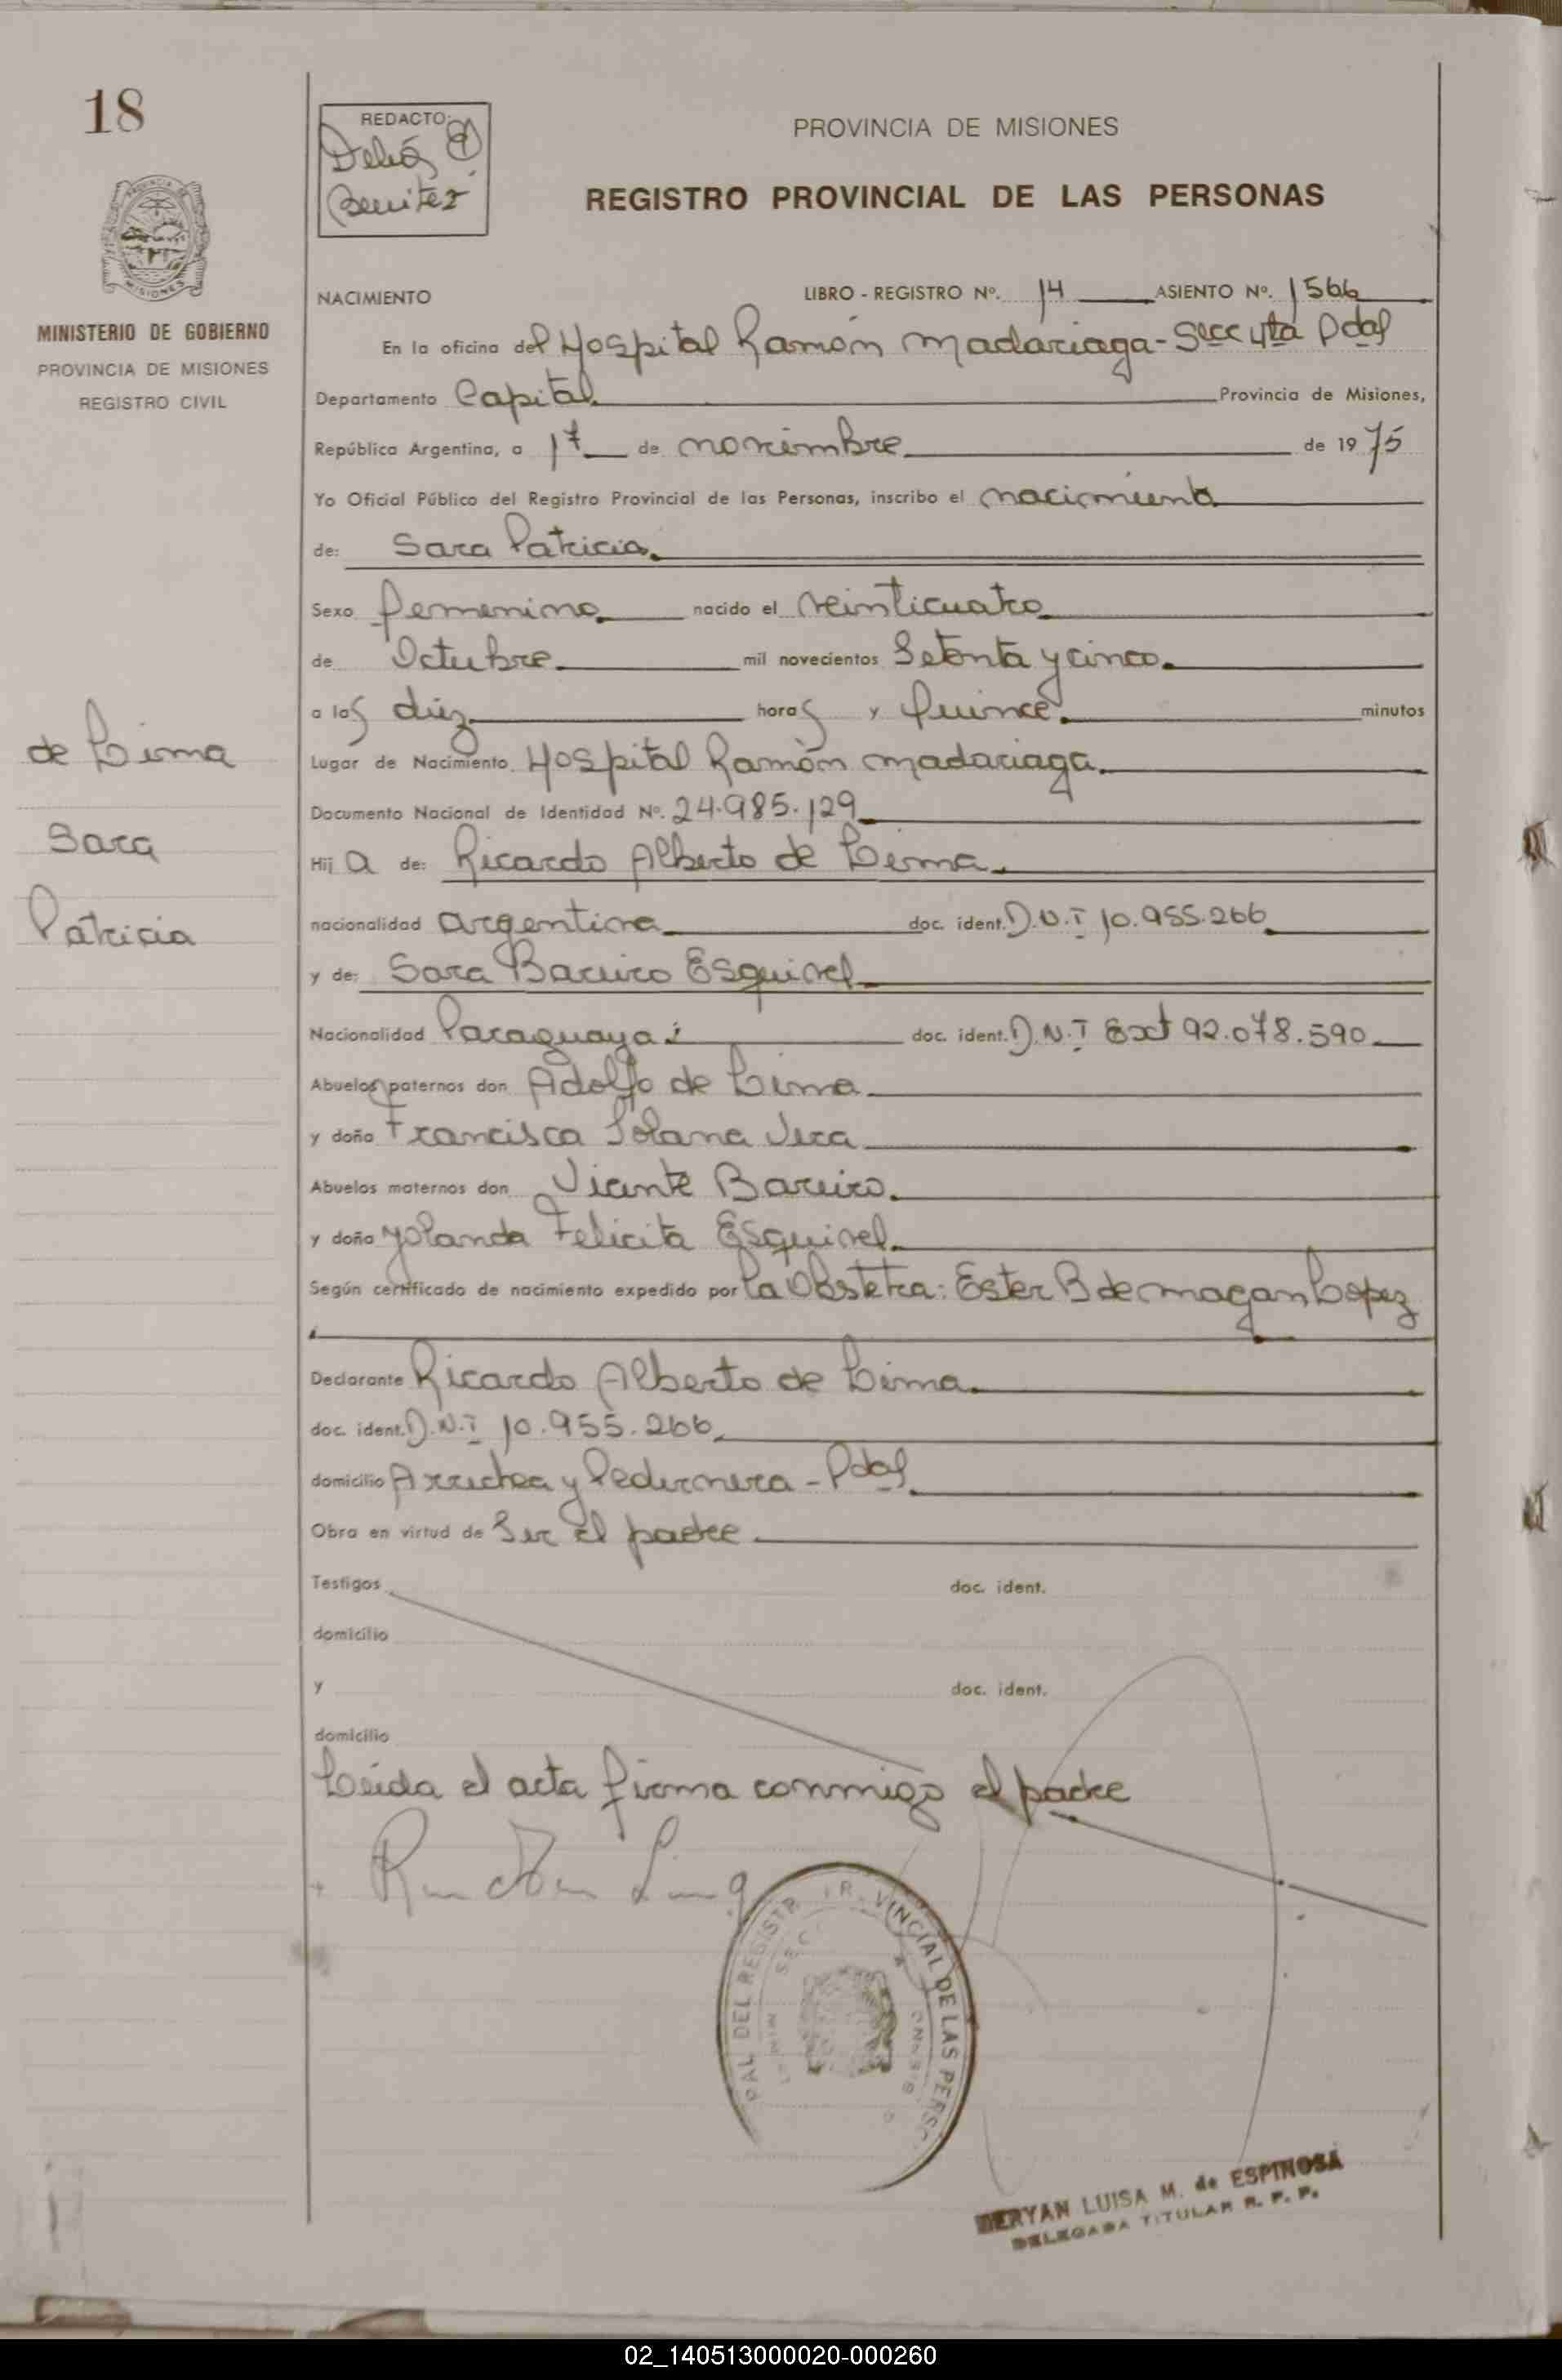 18
REDACTO:
Delia
Benitez
PROVINCIA DE MISIONES
REGISTRO PROVINCIAL DE LAS PERSONAS
MISIONES
MINISTERIO DE GOBIERNO
PROVINCIA DE MISIONES
REGISTRO CIVIL
NACIMIENTO LIBRO - REGISTRO Nº. 14 ASIENTO Nº. 1566
En la oficina del Hospital Ramón Madariaga - Secc 4ta Pdas
Departamento Capital Provincia de Misiones,
República Argentina, a 17 de noviembre de 1975
Yo Oficial Público del Registro Provincial de las Personas, inscribo el nacimiento
de: Sara Patricia
Sexo femenino nacido el veinticuatro
de Octubre mil novecientos Setenta y cinco
a las diez horas y quince minutos
de Lima
Lugar de Nacimiento Hospital Ramón Madariaga
Documento Nacional de Identidad Nº. 24.985.129
Sara
Hija de: Ricardo Alberto de Lima
Patricia
nacionalidad argentina doc. ident. D.N.I 10.955.266
y de: Sara Bareiro Esquivel
Nacionalidad Paraguaya doc. ident. D.N.I Ext 92.078.590
Abuelos paternos don Adolfo de Lima
y doña Francisca Solana Vera
Abuelos maternos don Vicente Bareiro
y doña Yolanda Felicita Esquivel
Según certificado de nacimiento expedido por la Obstetra: Ester B de Magan Lopez
Declarante Ricardo Alberto de Lima
doc. ident. D.N.I 10.955.266
domicilio Arrechea y Pedernera - Pdas
Obra en virtud de Ser el padre
Testigos doc. ident.
domicilio
y doc. ident.
domicilio
Leída el acta firma conmigo el padre
PAL DEL REGISTR VINCIAL DE LAS PERS
MERYAN LUISA M. de ESPINOSA
DELEGADA TITULAR R. P. P.
02_140513000020-000260